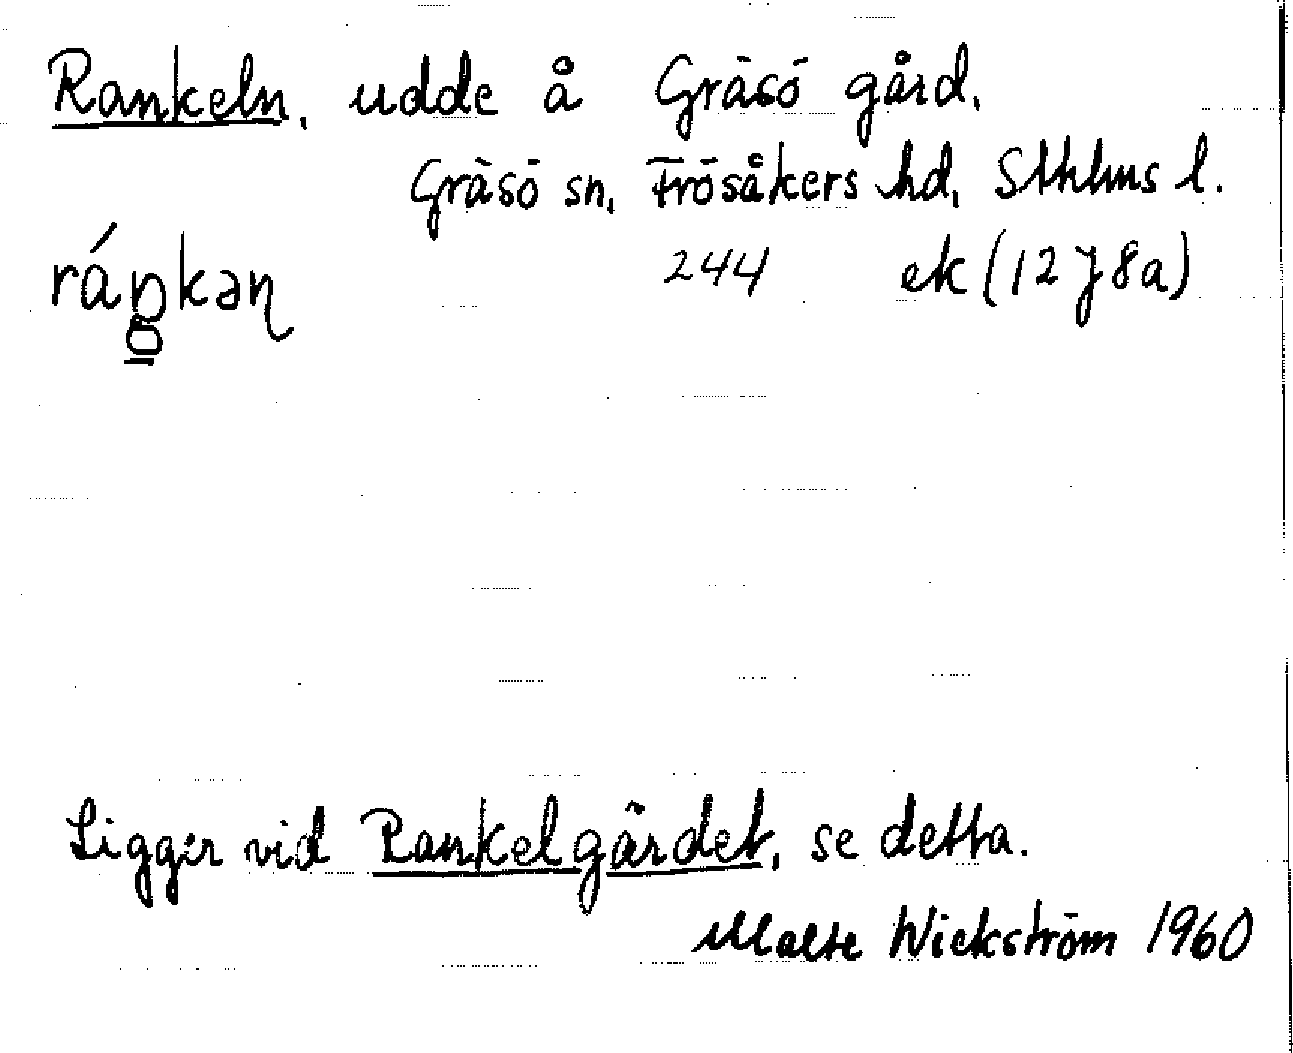 Rankeln, udde å Gräsö gård,
Gräsö sn, Frösåkers hd, Sthlms l.
ráŋkəɳ 244 ek (12 J 8a)
Ligger vid Rankelgärdet, se detta.
Malte Wickström 1960